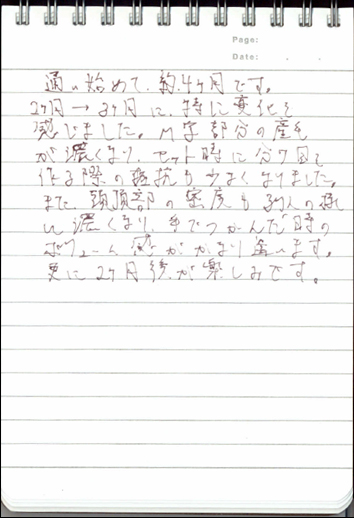 Page:
Date:
通い始めて、約4ヶ月です。
2ヶ月→3ヶ月に、特に変化を
感じました。M字部分の産毛
が濃くなり、セット時に分ケ目を
作る際の抵抗も少なくなりました。
また、頭頂部の密度も別人の様
に濃くなり、手でつかんだ時の
ボリューム感がかなり違います。
更に2ヶ月後が楽しみです。